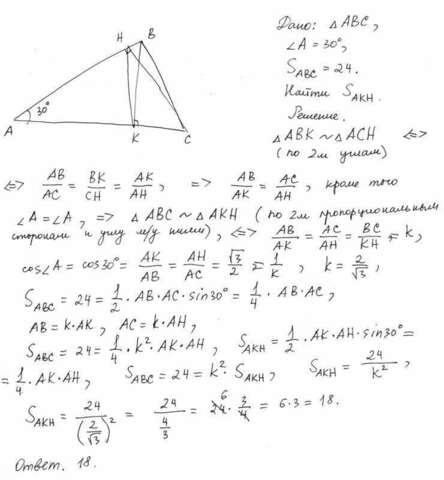 H B
30°
A K C
Дано: △ABC,
∠A = 30°,
S_ABC = 24.
Найти S_AKH.
Решение.
△ABK ~ △ACH <=>
(по 2м углам)
<=> AB/AC = BK/CH = AK/AH, => AB/AK = AC/AH, кроме того
∠A = ∠A, => △ABC ~ △AKH (по 2м пропорциональным
сторонам и углу м/у ними), <=> AB/AK = AC/AH = BC/KH = k,
cos∠A = cos30° = AK/AB = AH/AC = √3/2 = 1/k, k = 2/√3,
S_ABC = 24 = 1/2 · AB · AC · sin30° = 1/4 · AB · AC,
AB = k · AK, AC = k · AH,
S_ABC = 24 = 1/4 · k² · AK · AH, S_AKH = 1/2 · AK · AH · sin30° =
= 1/4 · AK · AH, S_ABC = 24 = k² · S_AKH, S_AKH = 24/k²,
S_AKH = 24/(2/√3)² = 24/(4/3) = 24 6 · 3/4 = 6·3 = 18.
Ответ. 18.